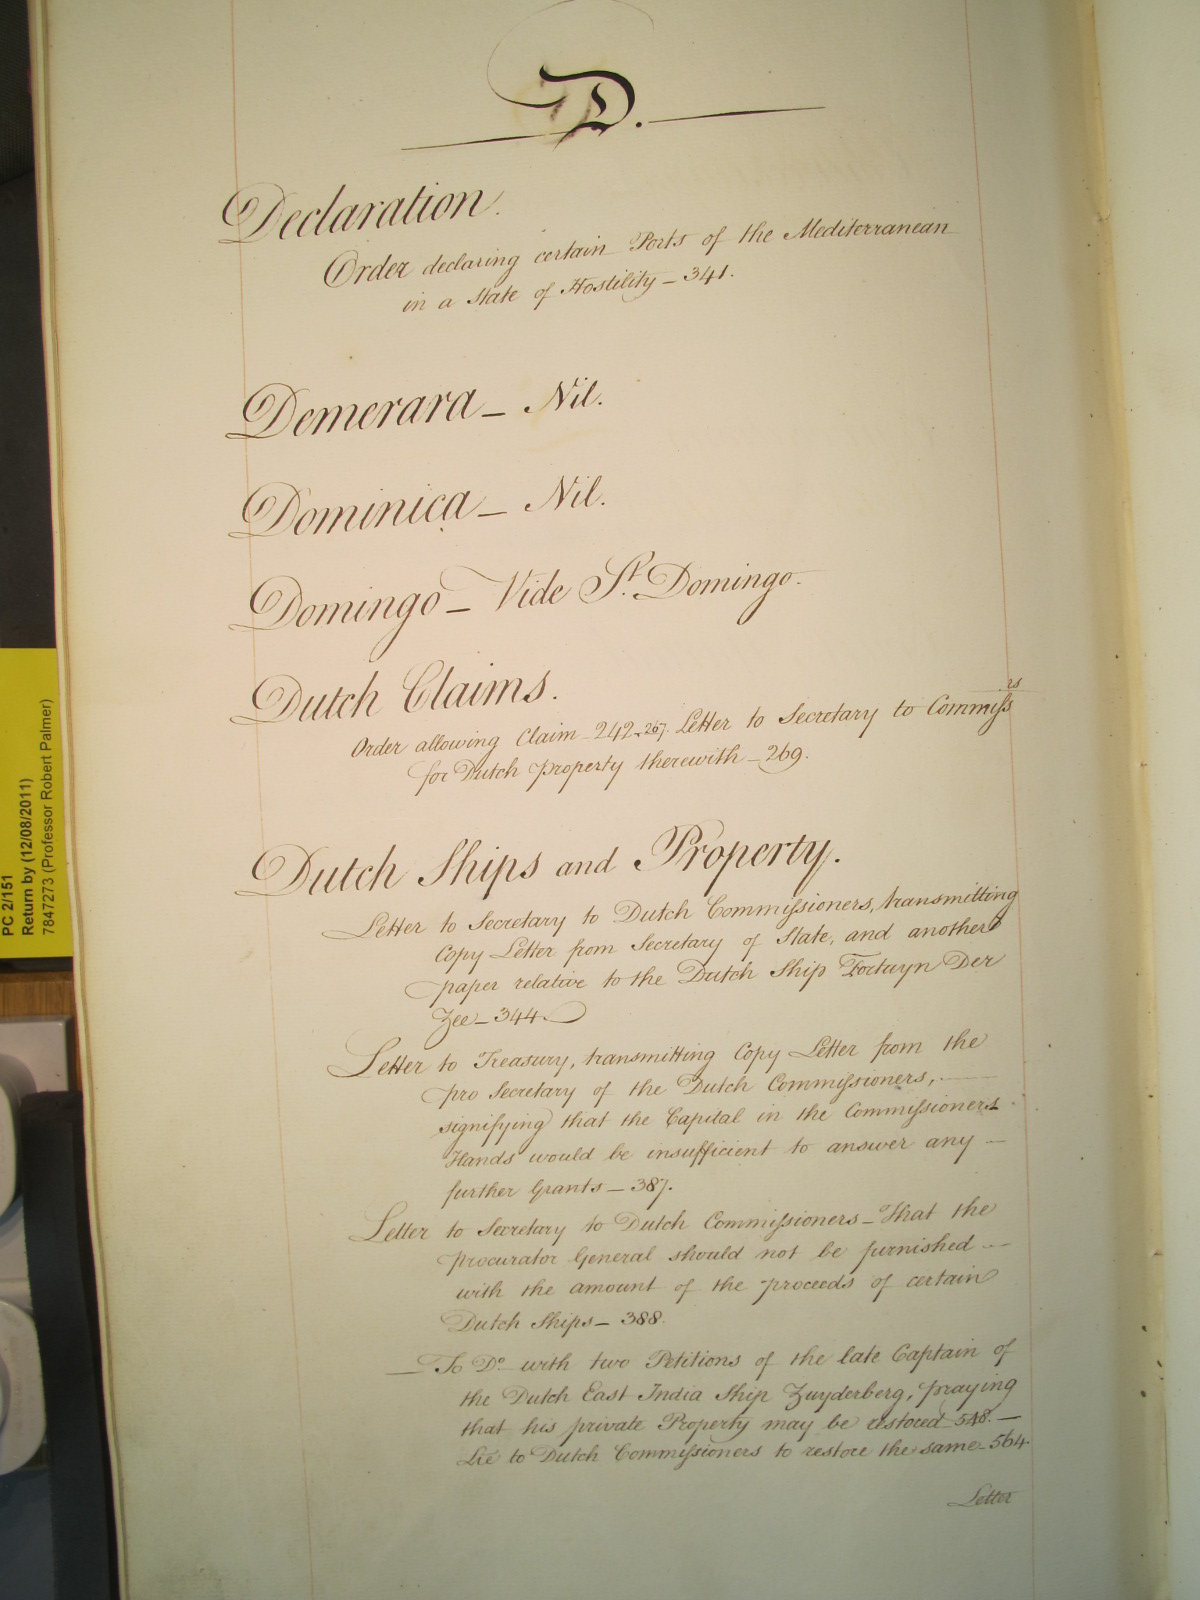 D.
Declaration.
Order declaring certain Ports of the Mediterranean
in a State of Hostility – 341.
Demerara – Nil.
Dominica – Nil.
Domingo – Vide St. Domingo.
Dutch Claims.
Order allowing Claim – 242, 267. Letter to Secretary to Commissrs
for Dutch Property therewith – 269.
Dutch Ships and Property.
Letter to Secretary to Dutch Commissioners, transmitting
Copy Letter from Secretary of State, and another
paper relative to the Dutch Ship Fortuyn Der
Zee – 344.
Letter to Treasury, transmitting Copy Letter from the
pro Secretary of the Dutch Commissioners,
signifying that the Capital in the Commissioners
Hands would be insufficient to answer any –
further Grants – 387.
Letter to Secretary to Dutch Commissioners – That the
Procurator General should not be furnished –
with the amount of the proceeds of certain
Dutch Ships – 388.
– To Do. with two Petitions of the late Captain of
the Dutch East India Ship Zuyderberg, praying
that his private Property may be restored – 548. –
Lre to Dutch Commissioners to restore the same – 564.
Letter
PC 2/151
Return by (12/08/2011)
7847273 (Professor Robert Palmer)